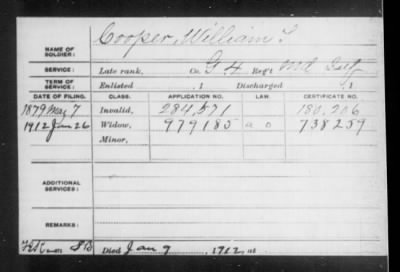 NAME OF SOLDIER: Cooper, William T
SERVICE: Late rank, Co. G 4 Reg't Md Inf
TERM OF SERVICE: Enlisted , 1 Discharged , 1
DATE OF FILING. CLASS. APPLICATION NO. LAW. CERTIFICATE NO.
1879 May 7 Invalid, 284,571 180,206
1912 Jan 26 Widow, 979185 738259
Minor,
ADDITIONAL SERVICES:
REMARKS:
Died Jan 9 1912, at